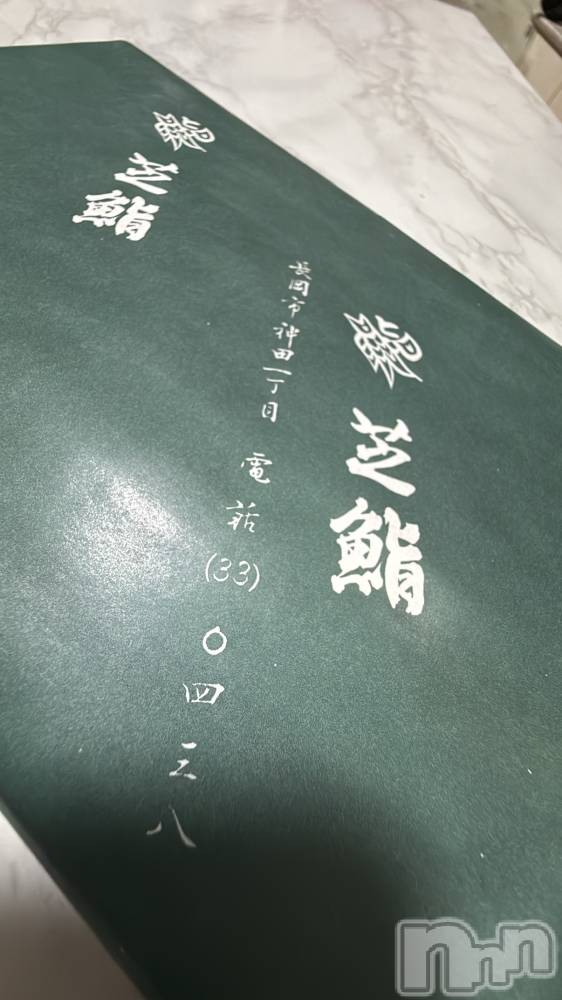 芝鮨
長岡市神田一丁目
電話(33)〇四三八
芝鮨
nnn